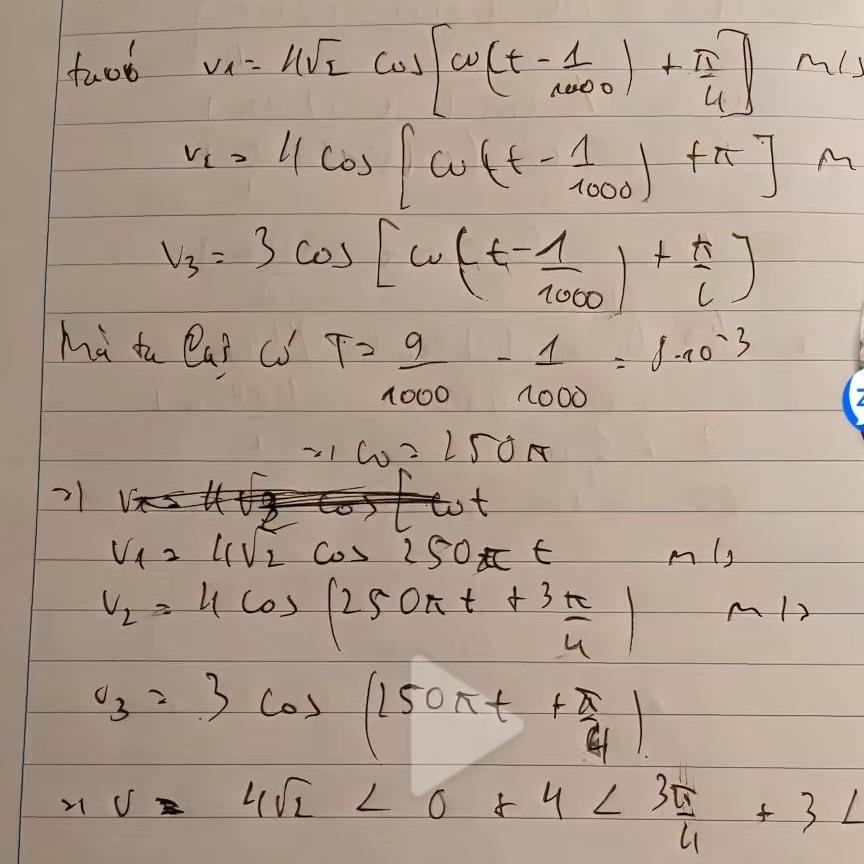 ta có v1 = 4√2 cos[ω(t - 1/1000) + π/4] m/s
v2 = 4 cos[ω(t - 1/1000) + π] m
v3 = 3 cos[ω(t - 1/1000) + π/2]
Mà ta lại có T = 9/1000 - 1/1000 = 8.10^-3
=> ω = 250π
=>
v1 = 4√2 cos 250πt m/s
v2 = 4 cos(250πt + 3π/4) m/s
v3 = 3 cos(250πt + π/4)
=> v = 4√2 ∠ 0 + 4 ∠ 3π/4 + 3 ∠